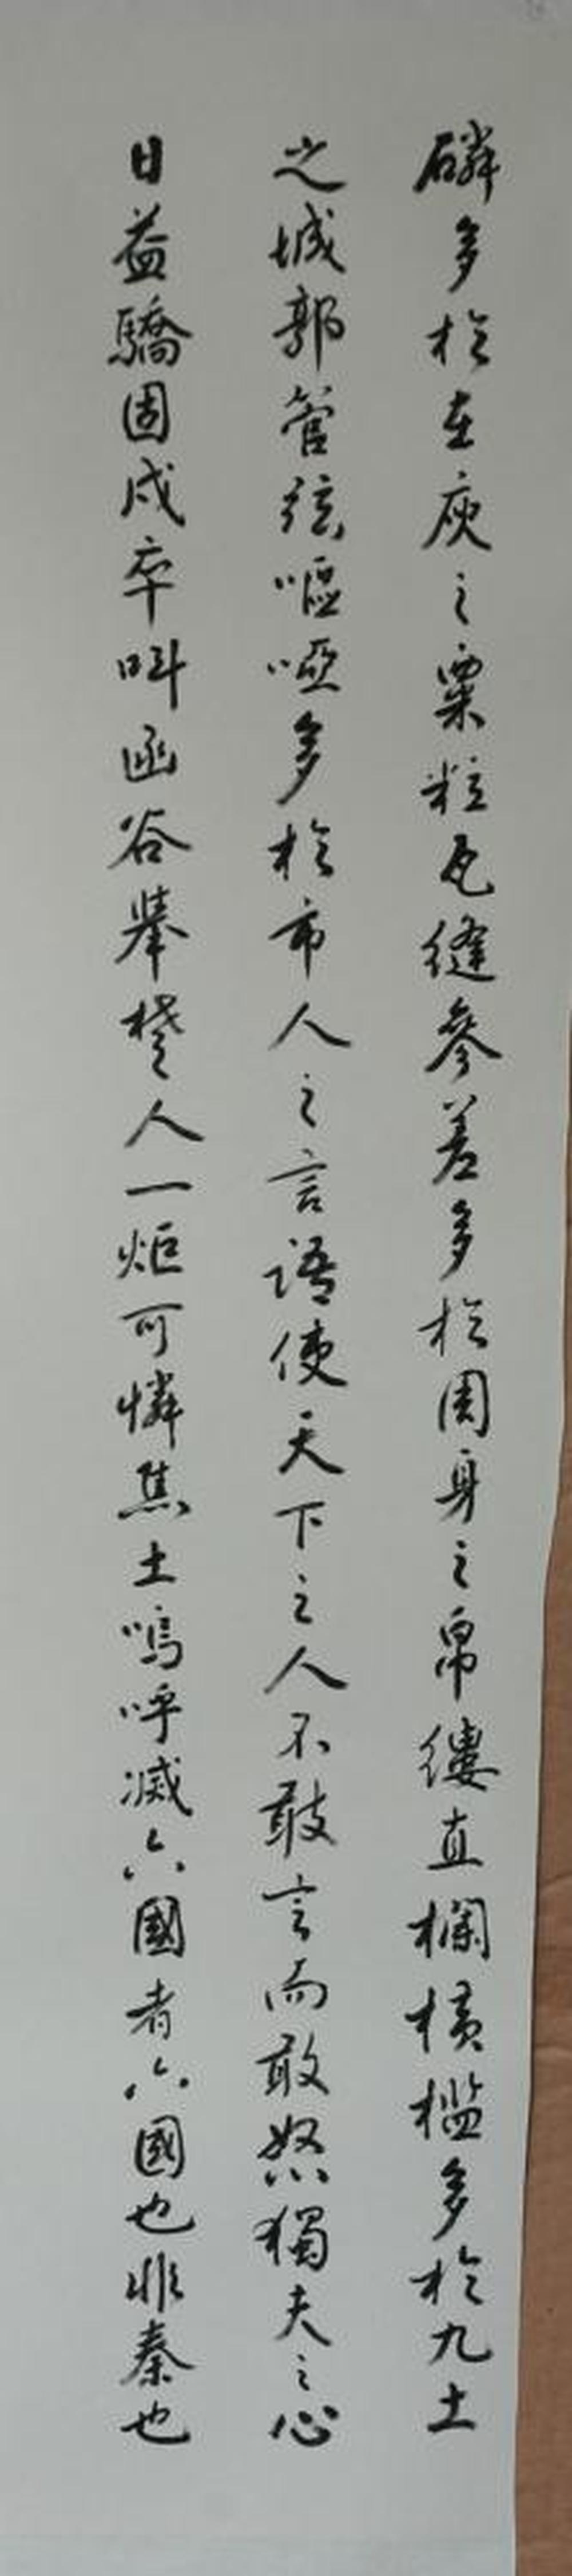 磷多於在庾之粟粒瓦縫參差多於周身之帛縷直欄橫檻多於九土
之城郭管弦嘔啞多於市人之言語使天下之人不敢言而敢怒獨夫之心
日益驕固戍卒叫函谷舉楚人一炬可憐焦土嗚呼滅六國者六國也非秦也